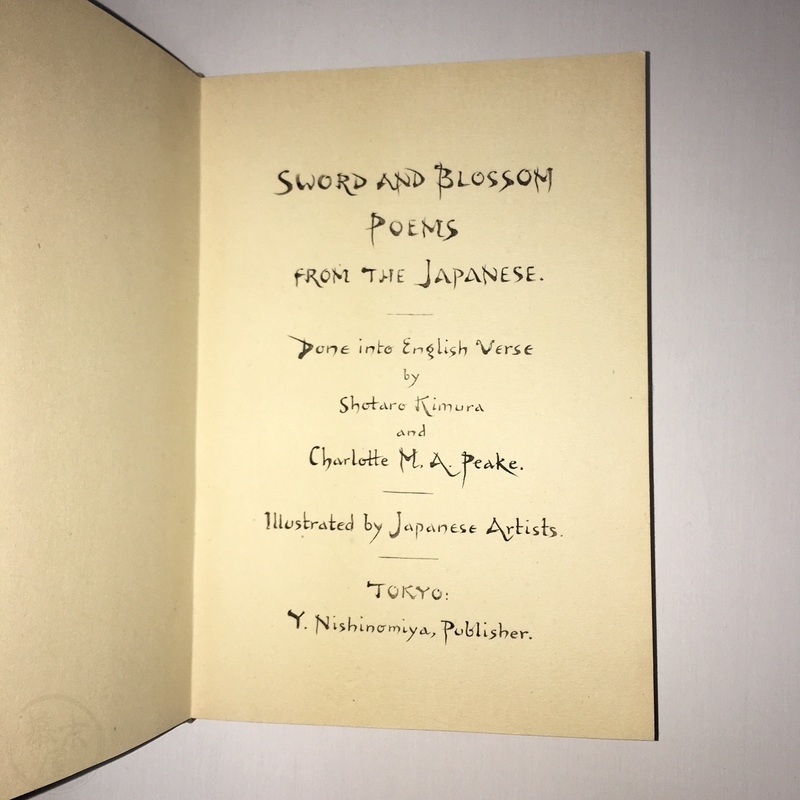 SWORD AND BLOSSOM
POEMS
FROM THE JAPANESE.
Done into English Verse
by
Shotaro Kimura
and
Charlotte M. A. Peake.
Illustrated by Japanese Artists.
TOKYO:
Y. Nishinomiya, Publisher.